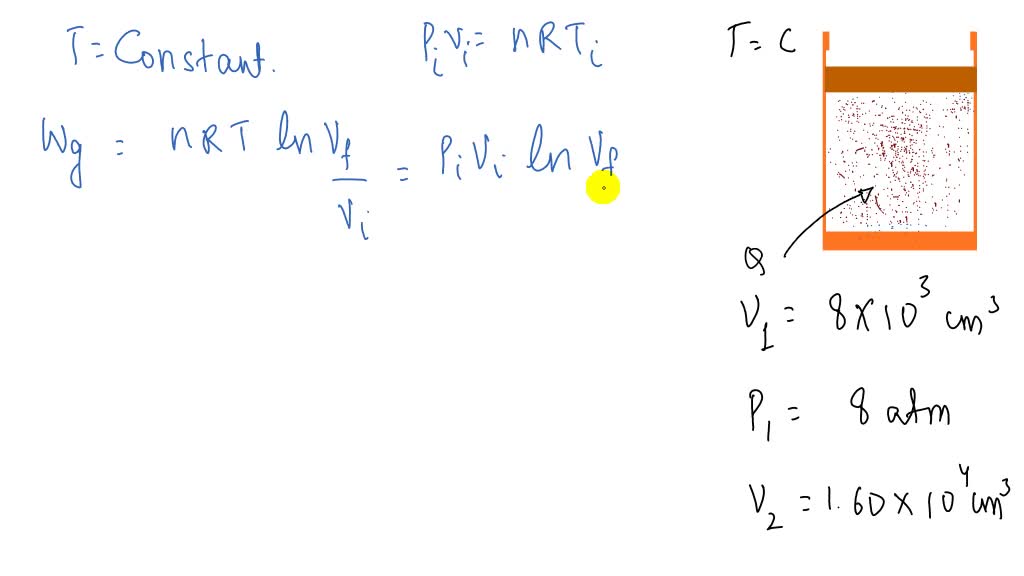 T = Constant.
PᵢVᵢ = nRTᵢ
T = C
Wg = nRT ln Vf/Vᵢ = PᵢVᵢ ln Vf
Q
V₁ = 8×10³ cm³
P₁ = 8 atm
V₂ = 1.60×10⁴ cm³